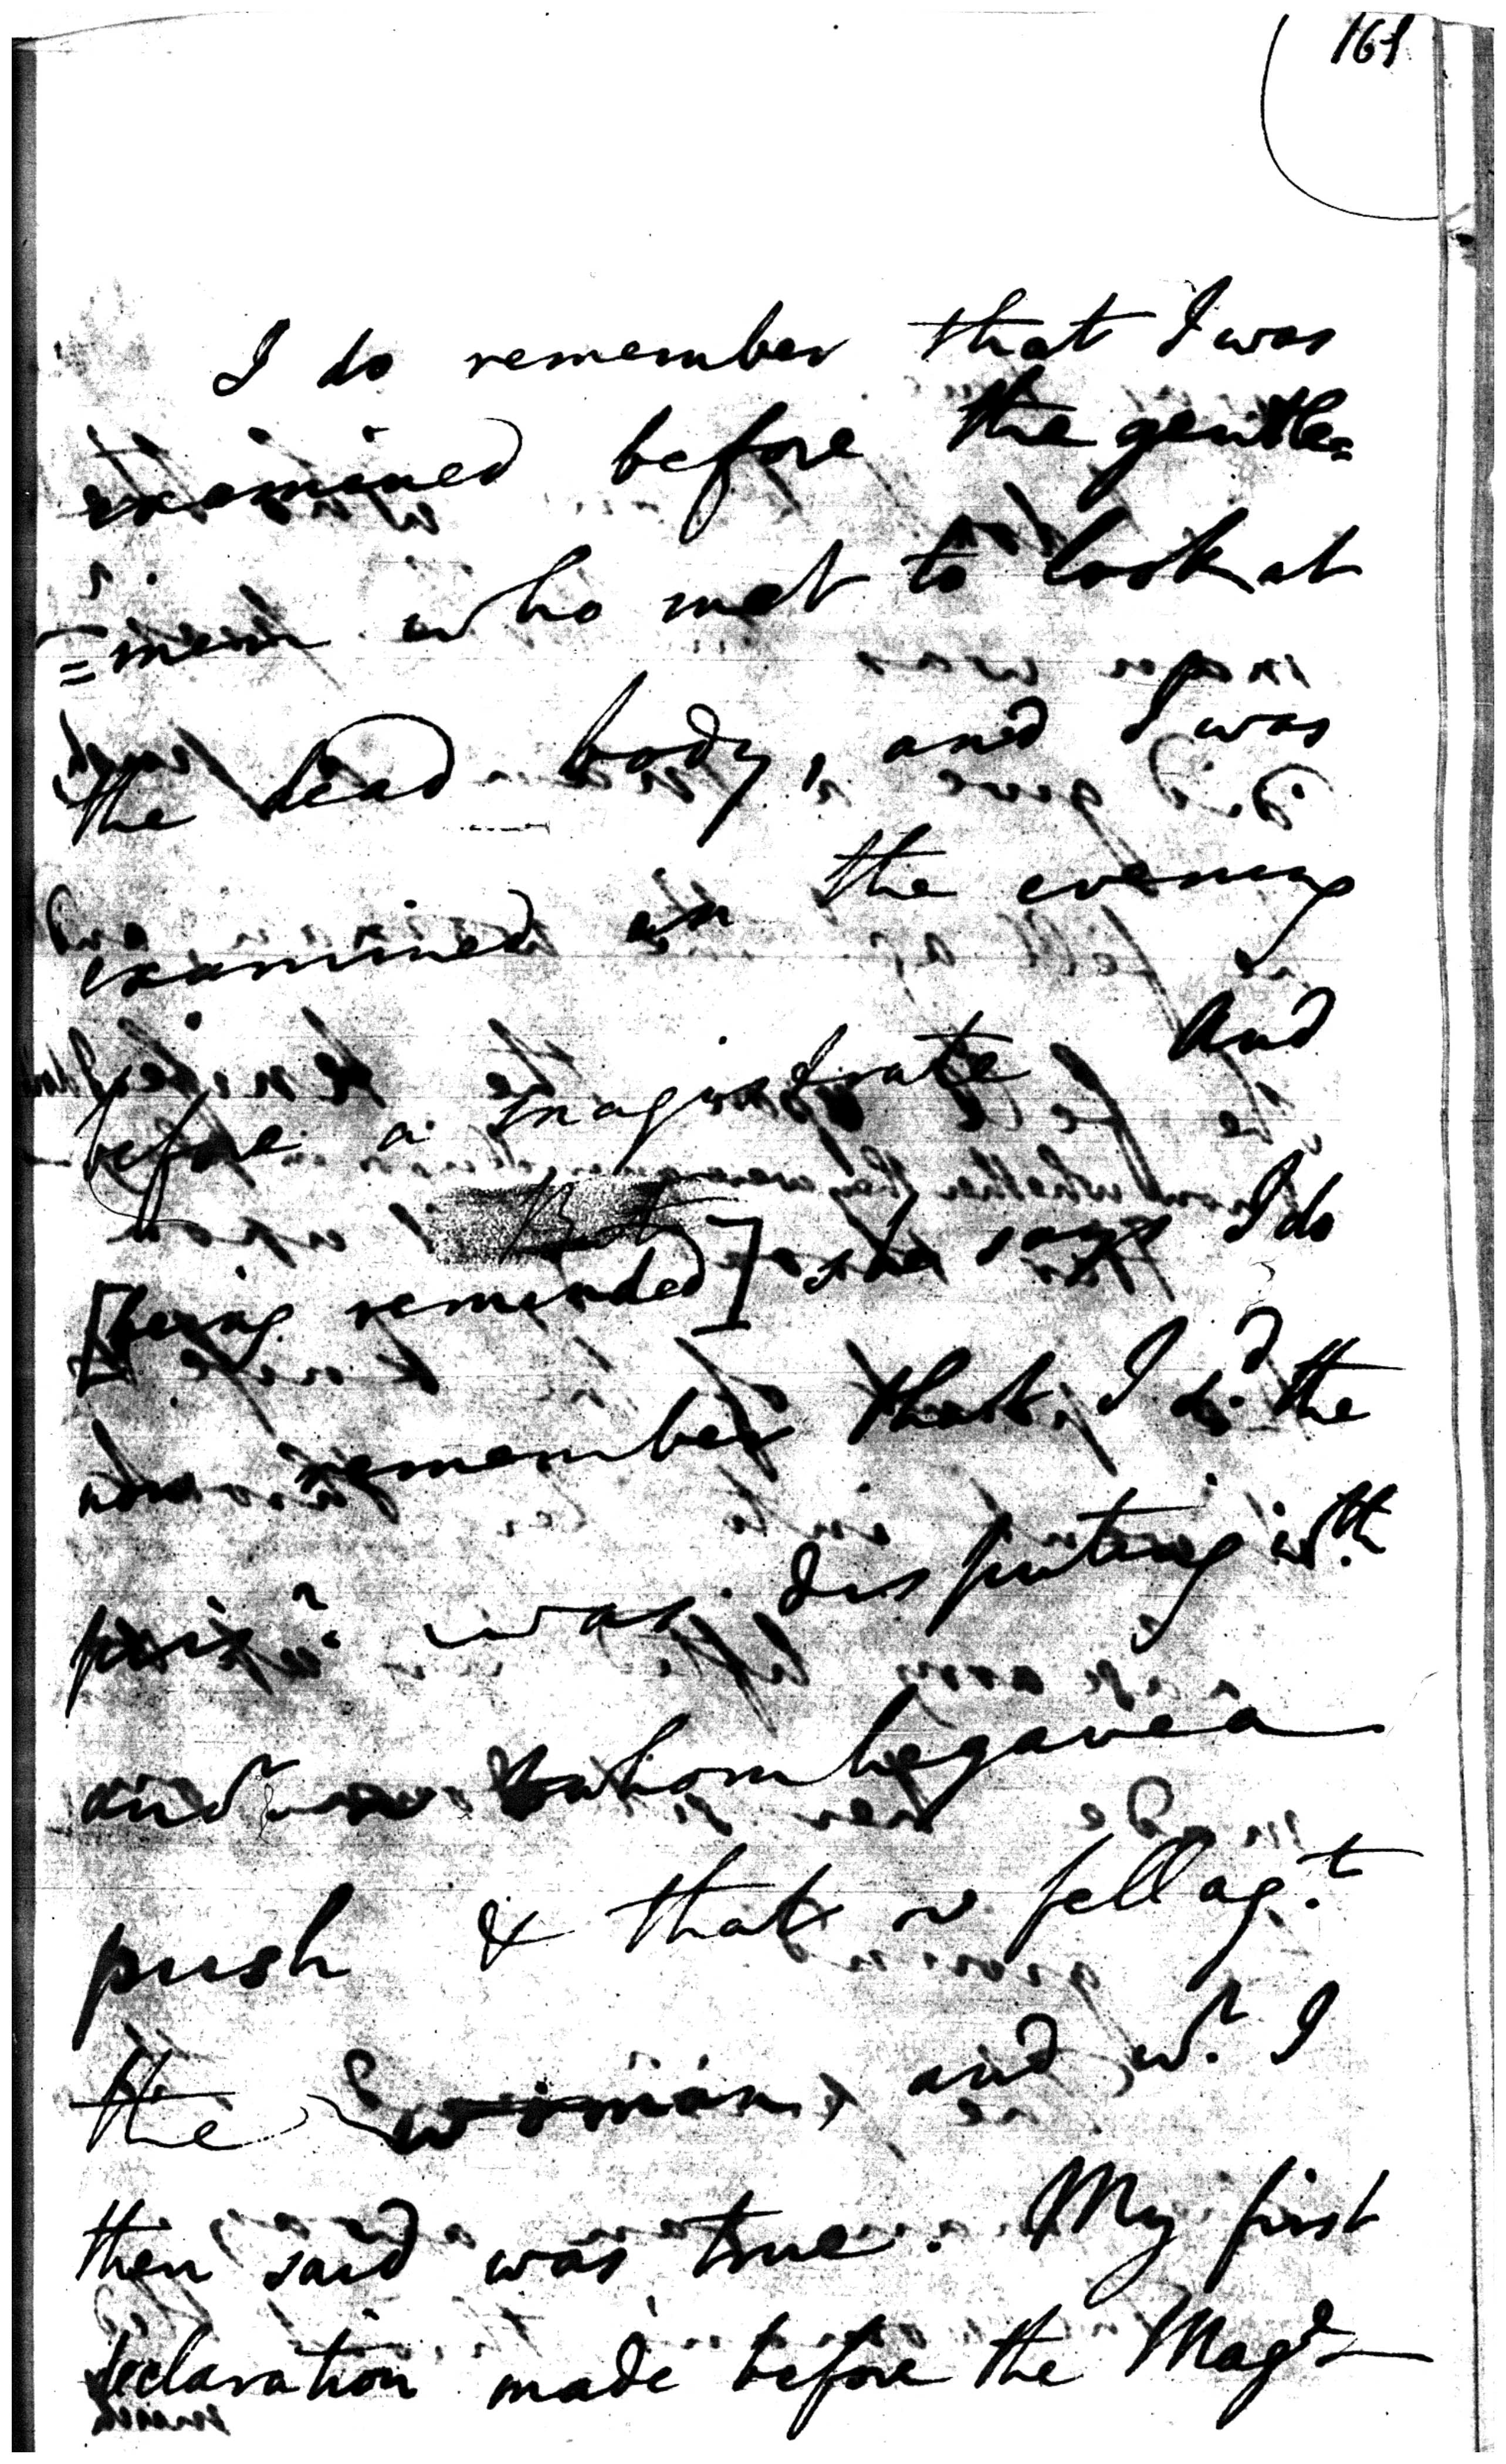 161
I do remember that I was
examined before the gentle=
=men who met to look at
the dead body, and I was
examined in the evening
before a magistrate And
[being reminded] she says I do
now remember that I sd. the
prisr. was disputing wth.
and whom he gave a
push & that fell agt.
the woman, and wt. I
then said was true. My first
declaration made before the Magte